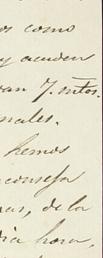 os como
y acuden
van 7. mtos.
nales.
hemos
aconseja
nas, de la
dia hora,